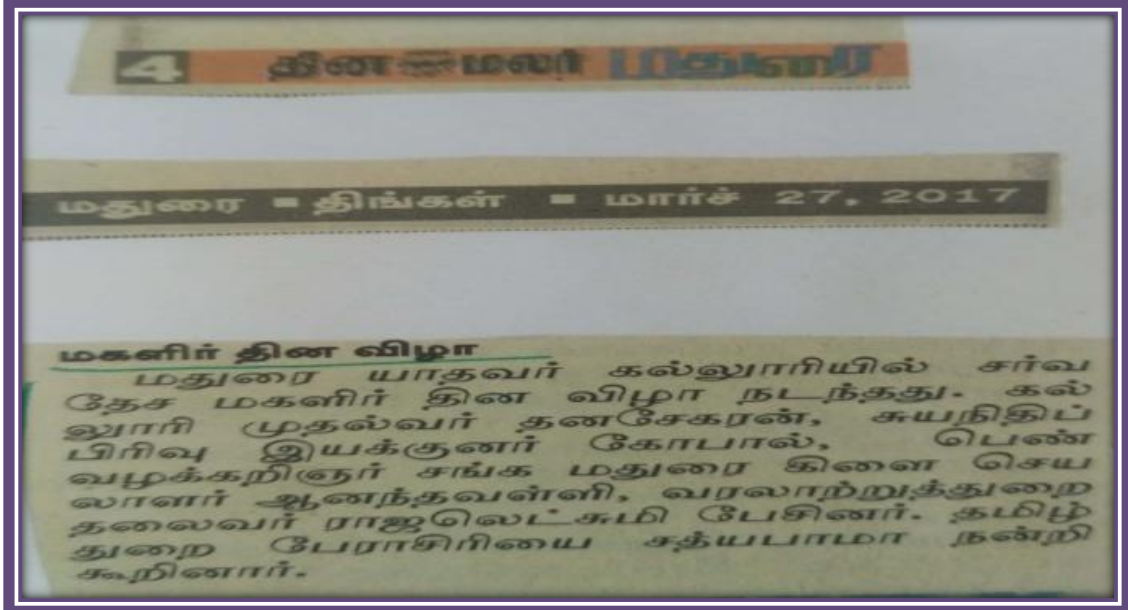 4 தினமலர் மதுரை
மதுரை ▪ திங்கள் ▪ மார்ச் 27, 2017
மகளிர் தின விழா
மதுரை யாதவர் கல்லூரியில் சர்வ
தேச மகளிர் தின விழா நடந்தது. கல்
லூரி முதல்வர் தனசேகரன், சுயநிதிப்
பிரிவு இயக்குனர் கோபால், பெண்
வழக்கறிஞர் சங்க மதுரை கிளை செய
லாளர் ஆனந்தவள்ளி, வரலாற்றுத்துறை
தலைவர் ராஜலெட்சுமி பேசினர். தமிழ்
துறை பேராசிரியை சத்யபாமா நன்றி
கூறினார்.